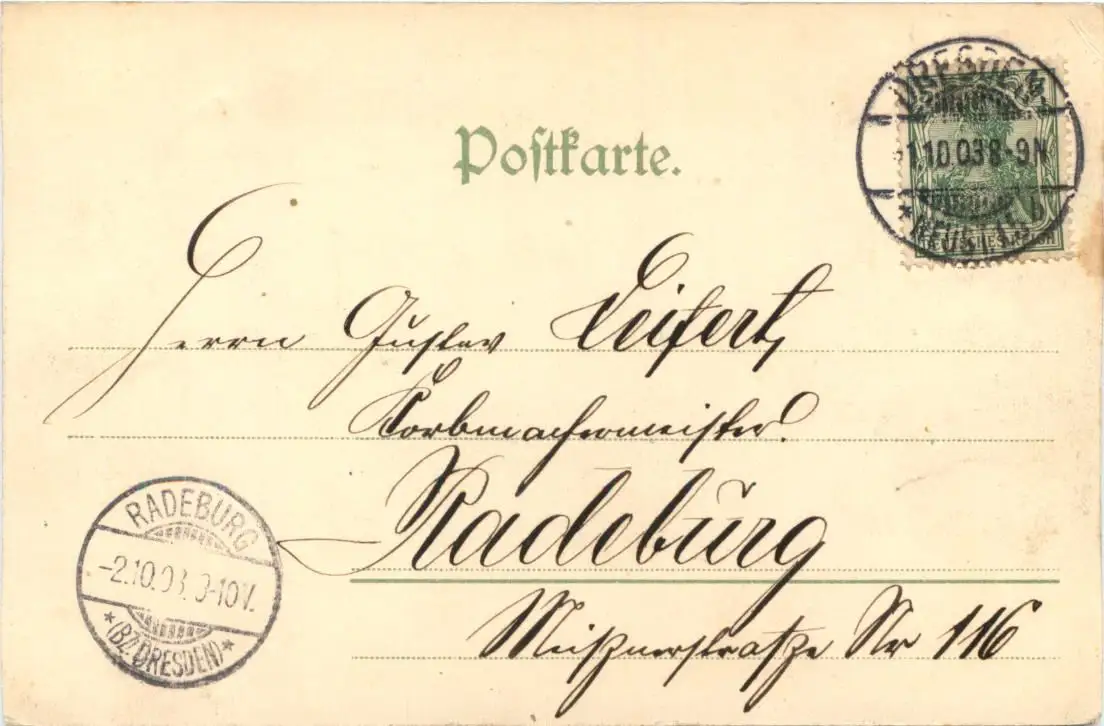 Postkarte.
DRESDEN
1.10.03 8-9N
* NEUST. 1 b
DEUTSCHES REICH
Herrn Gustav Seifert,
Korbmachermeister.
Radeburg
Meißnerstraße Nr 116
RADEBURG
-2.10.03. 9-10V.
*(BZ. DRESDEN)*